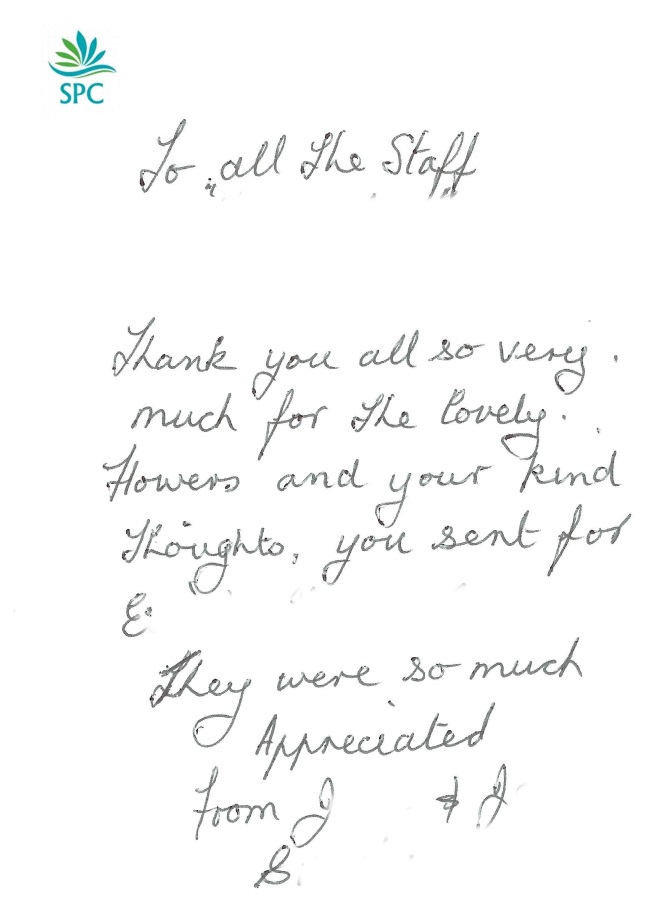 SPC
To all The Staff
Thank you all so very.
much for The lovely.
Flowers and your kind
Thoughts, you sent for
E.
They were so much
Appreciated
From J & J
S